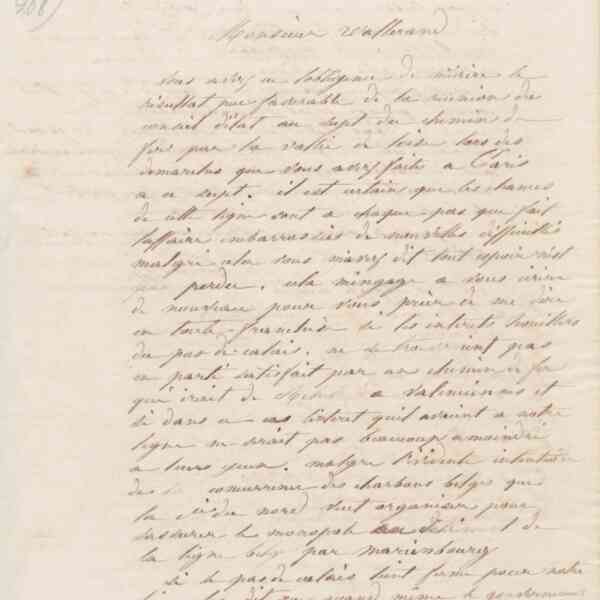 708)
Monsieur Vallerand
vous avez eu l'obligence de m'ecrire le
résultat peu favorable de la reunion du
conseil d'état au sujet du chemin de
fer par la vallée de loise lors des
demarches que vous avez faites a Paris
a ce sujet. il est certain que les chances
de cette ligne sont a chaque pas que fait
l'affaire embarrassées de nouvelles difficultés
malgré cela vous m'avez dit tout espoir n'est
pas perdu. cela m'engage a vous écrire
de nouveau pour vous prier de me dire
en toute franchise si les interets houillers
du pas de calais. ne se trouveront pas
en parti satisfait par un chemin de fer
qui irait de a valenciennes et
si dans ce cas l'interet qu'il avaient a notre
ligne ne serait pas beaucoup amoindri
a leurs yeux. malgré l'évidente intention
de concurrence des charbons belges que
la Cie du nord veut organiser pour
s'assurer le monopole de
la ligne par mariembourg
si le pas de calais tient ferme pour notre
ligne dit quand même le gouvernement